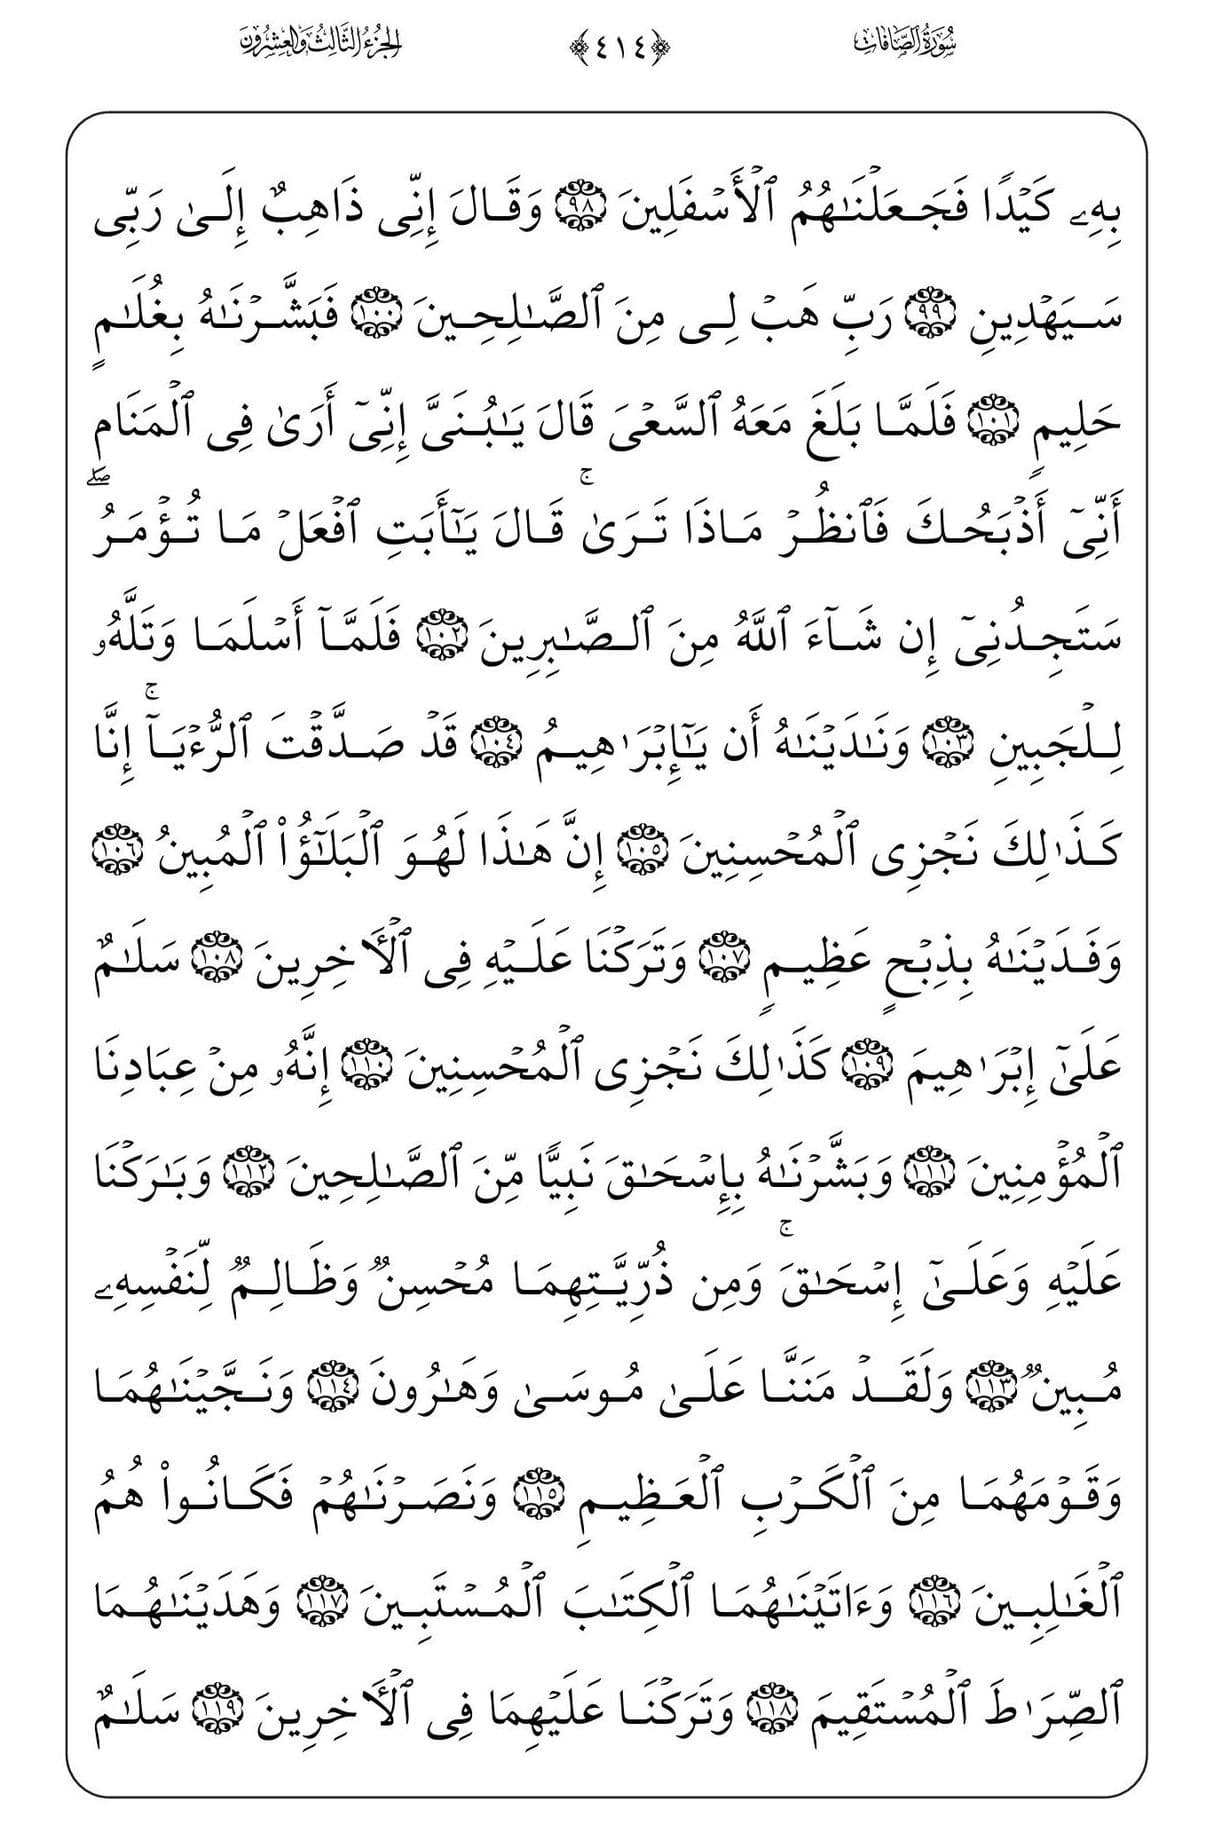 سُورَةُ الصَّافَّاتِ ﴿٤١٤﴾ الجُزْءُ الثَّالِثُ وَالْعِشْرُونَ
بِهِۦ كَيْدًا فَجَعَلْنَٰهُمُ ٱلْأَسْفَلِينَ ٩٨ وَقَالَ إِنِّى ذَاهِبٌ إِلَىٰ رَبِّى
سَيَهْدِينِ ٩٩ رَبِّ هَبْ لِى مِنَ ٱلصَّٰلِحِينَ ١٠٠ فَبَشَّرْنَٰهُ بِغُلَٰمٍ
حَلِيمٍ ١٠١ فَلَمَّا بَلَغَ مَعَهُ ٱلسَّعْىَ قَالَ يَٰبُنَىَّ إِنِّىٓ أَرَىٰ فِى ٱلْمَنَامِ
أَنِّىٓ أَذْبَحُكَ فَٱنظُرْ مَاذَا تَرَىٰ ۚ قَالَ يَٰٓأَبَتِ ٱفْعَلْ مَا تُؤْمَرُ ۖ
سَتَجِدُنِىٓ إِن شَآءَ ٱللَّهُ مِنَ ٱلصَّٰبِرِينَ ١٠٢ فَلَمَّآ أَسْلَمَا وَتَلَّهُۥ
لِلْجَبِينِ ١٠٣ وَنَٰدَيْنَٰهُ أَن يَٰٓإِبْرَٰهِيمُ ١٠٤ قَدْ صَدَّقْتَ ٱلرُّءْيَآ ۚ إِنَّا
كَذَٰلِكَ نَجْزِى ٱلْمُحْسِنِينَ ١٠٥ إِنَّ هَٰذَا لَهُوَ ٱلْبَلَٰٓؤُا۟ ٱلْمُبِينُ ١٠٦
وَفَدَيْنَٰهُ بِذِبْحٍ عَظِيمٍ ١٠٧ وَتَرَكْنَا عَلَيْهِ فِى ٱلْءَاخِرِينَ ١٠٨ سَلَٰمٌ
عَلَىٰٓ إِبْرَٰهِيمَ ١٠٩ كَذَٰلِكَ نَجْزِى ٱلْمُحْسِنِينَ ١١٠ إِنَّهُۥ مِنْ عِبَادِنَا
ٱلْمُؤْمِنِينَ ١١١ وَبَشَّرْنَٰهُ بِإِسْحَٰقَ نَبِيًّا مِّنَ ٱلصَّٰلِحِينَ ١١٢ وَبَٰرَكْنَا
عَلَيْهِ وَعَلَىٰٓ إِسْحَٰقَ ۚ وَمِن ذُرِّيَّتِهِمَا مُحْسِنٌ وَظَالِمٌ لِّنَفْسِهِۦ
مُبِينٌ ١١٣ وَلَقَدْ مَنَنَّا عَلَىٰ مُوسَىٰ وَهَٰرُونَ ١١٤ وَنَجَّيْنَٰهُمَا
وَقَوْمَهُمَا مِنَ ٱلْكَرْبِ ٱلْعَظِيمِ ١١٥ وَنَصَرْنَٰهُمْ فَكَانُوا۟ هُمُ
ٱلْغَٰلِبِينَ ١١٦ وَءَاتَيْنَٰهُمَا ٱلْكِتَٰبَ ٱلْمُسْتَبِينَ ١١٧ وَهَدَيْنَٰهُمَا
ٱلصِّرَٰطَ ٱلْمُسْتَقِيمَ ١١٨ وَتَرَكْنَا عَلَيْهِمَا فِى ٱلْءَاخِرِينَ ١١٩ سَلَٰمٌ